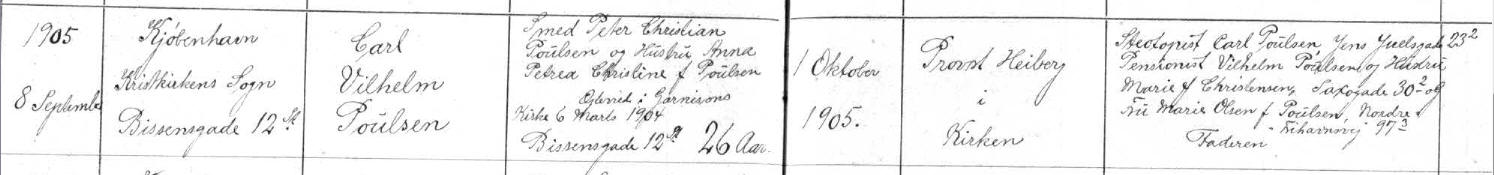 1905
8 September
Kjøbenhavn
Kristkirkens Sogn
Bissensgade 12 St.
Carl
Vilhelm
Poulsen
Smed Peter Christian
Poulsen og Hustru Anna
Petrea Christine f Poulsen
Gjtsviet i Garnisons
Kirke 6 Marts 1904
Bissensgade 12 St 26 Aar.
1 Oktober
1905.
Provst Heiberg
i
Kirken
Carl Poulsen, Jens Juelsgade 23 2
Pensionist Vilhelm Poulsen og Hustru
Marie f Christensen, Saxogade 30 2 og
Fru Marie Olsen f Poulsen, Nordre
Frihavnsvej 97 3
Faderen